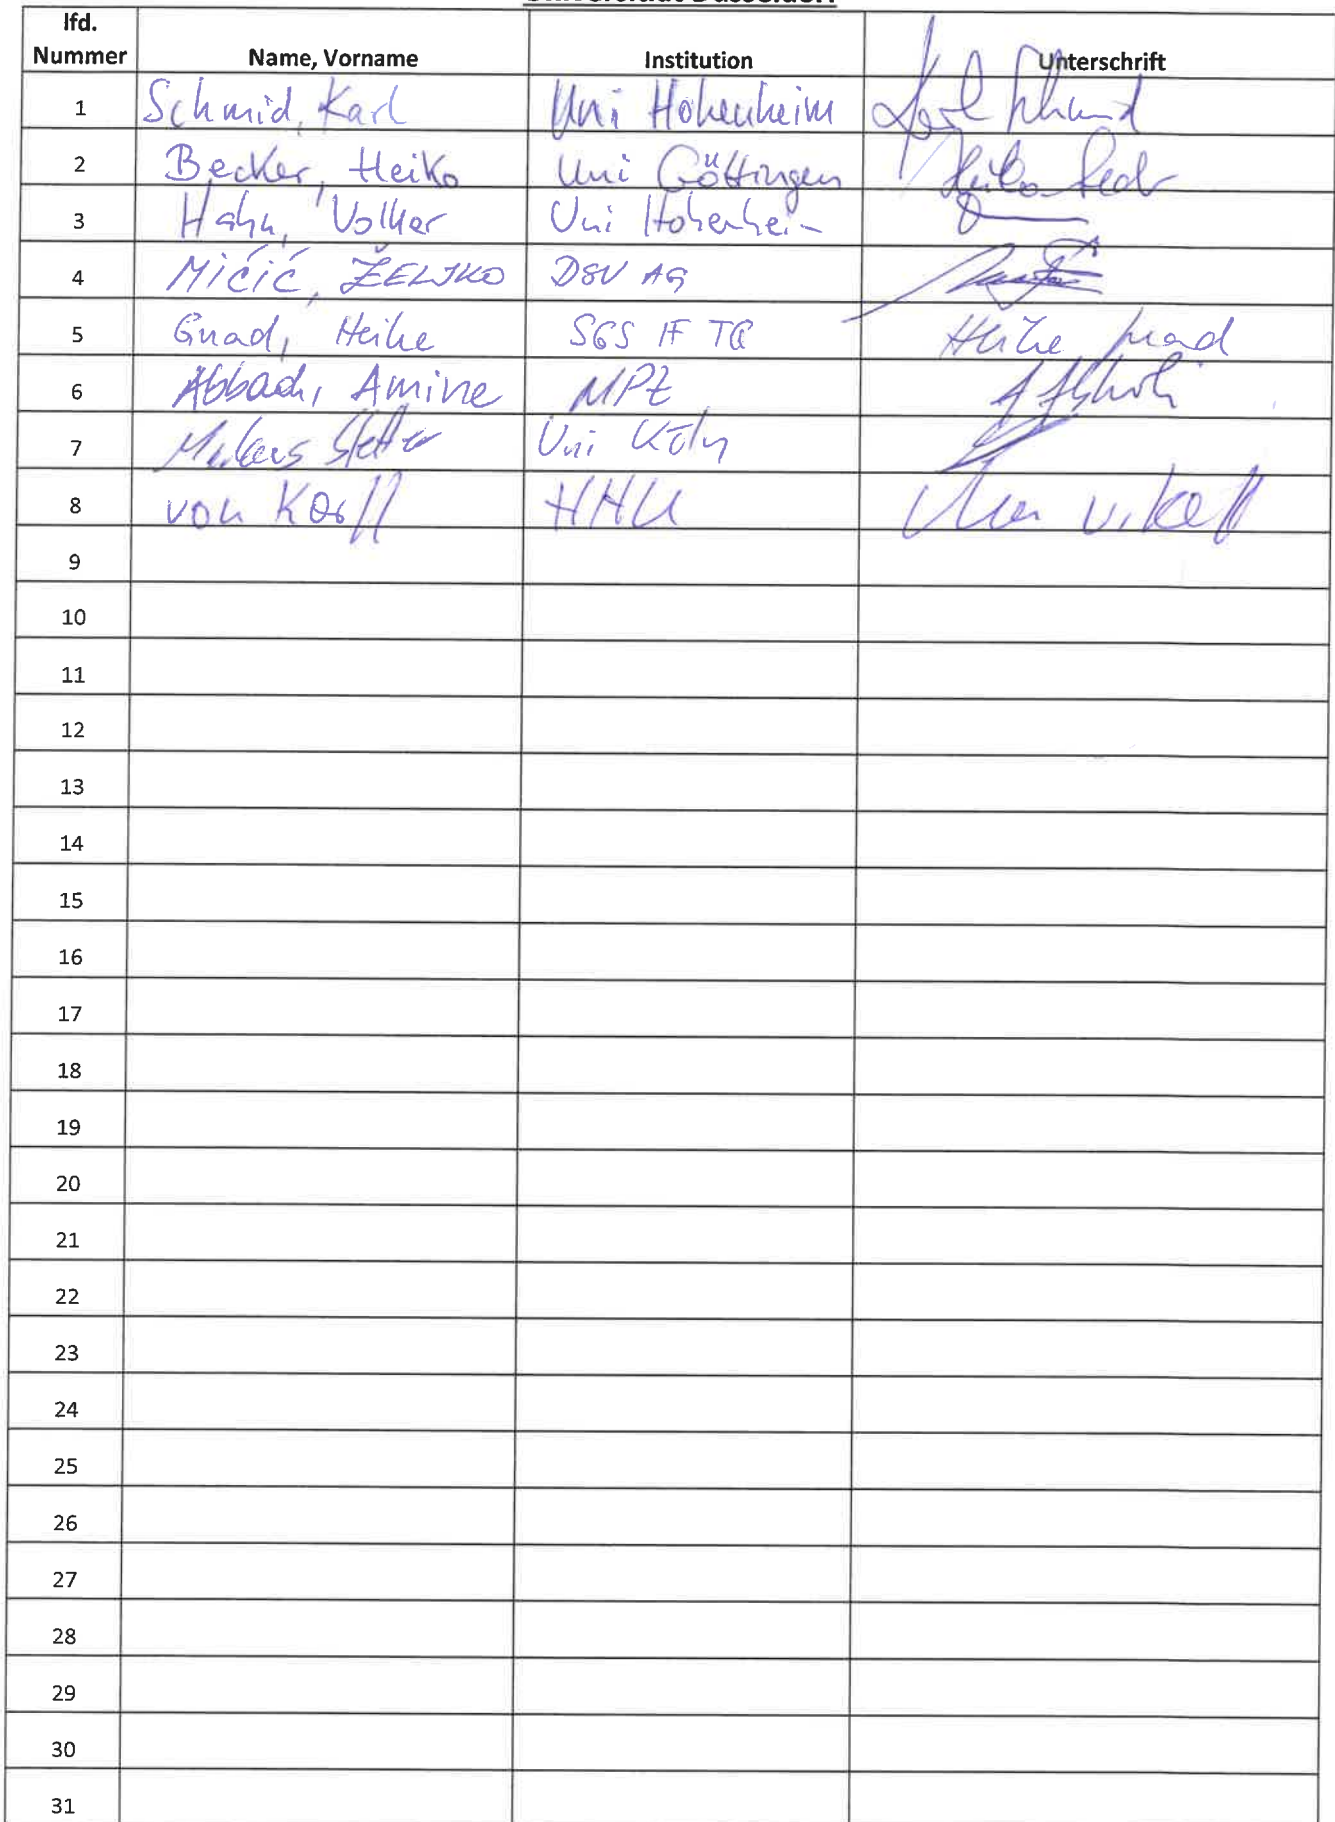 Universität Düsseldorf
lfd. Nummer Name, Vorname Institution Unterschrift
1 Schmid, Karl Uni Hohenheim Karl Schmid
2 Becker, Heiko Uni Göttingen Heiko
3 Hahn, Volker Uni Hohenheim
4 Mičić, ŽELJKO DSV AG
5 Gnad, Heike SGS IF TG Heike Gnad
6 Abbadi, Amine NPZ
7 Markus Stetter Uni Köln
8 von Korff HHU v. Korff
9
10
11
12
13
14
15
16
17
18
19
20
21
22
23
24
25
26
27
28
29
30
31